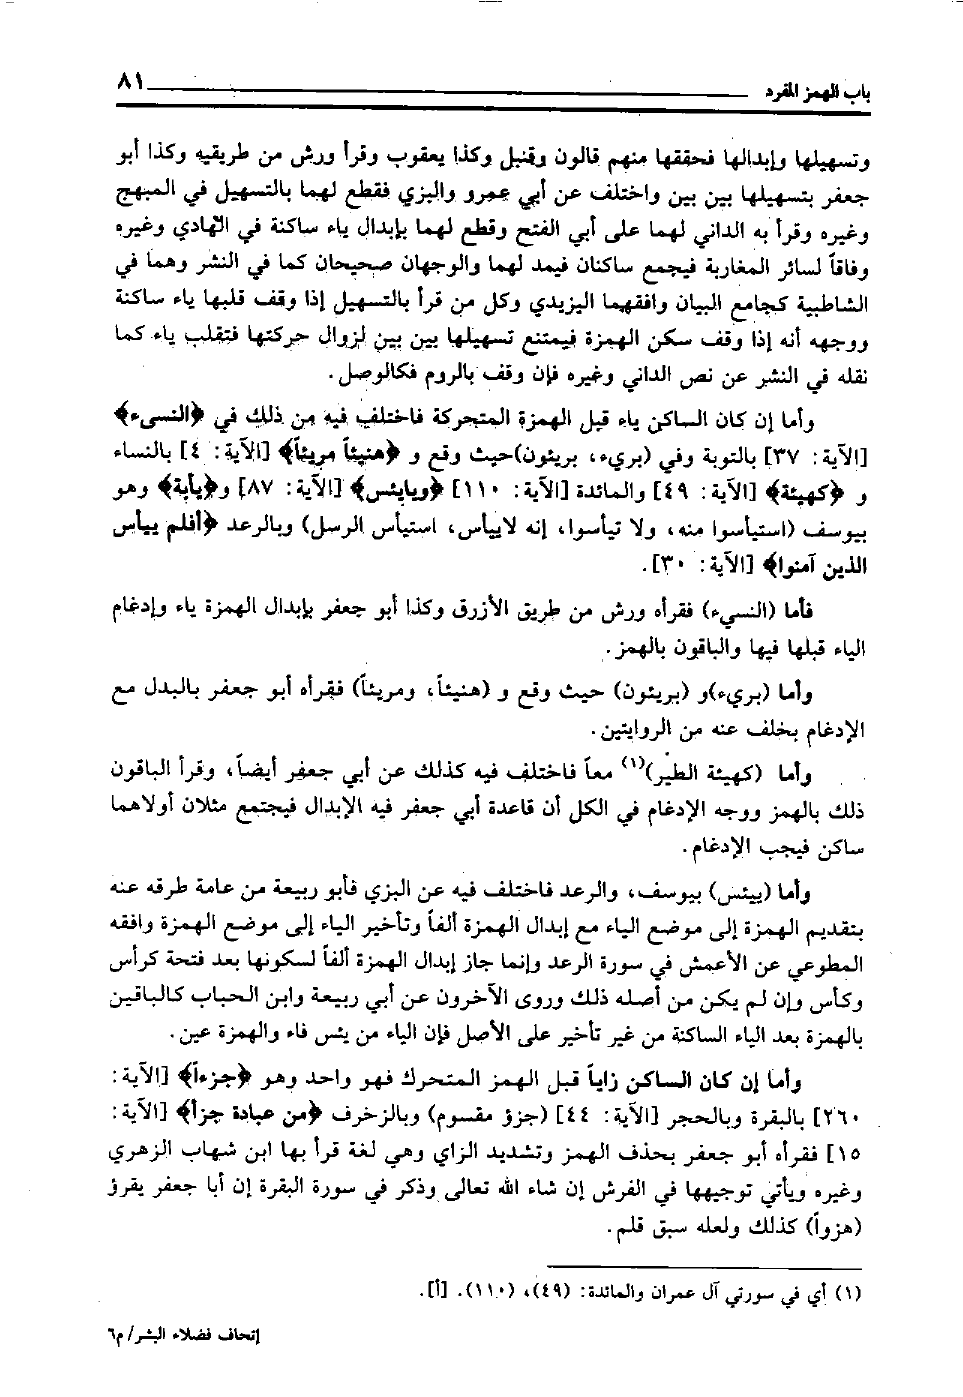 باب الهمز المفرد ٨١
وتسهيلها وإبدالها فحققها منهم قالون وقنبل وكذا يعقوب وقرأ ورش من طريقيه وكذا أبو
جعفر بتسهيلها بين بين واختلف عن أبي عمرو والبزي فقطع لهما بالتسهيل في المبهج
وغيره وقرأ به الداني لهما على أبي الفتح وقطع لهما بإبدال ياء ساكنة في الهادي وغيره
وفاقاً لسائر المغاربة فيجمع ساكنان فيمد لهما والوجهان صحيحان كما في النشر وهما في
الشاطبية كجامع البيان وافقهما اليزيدي وكل من قرأ بالتسهيل إذا وقف قلبها ياء ساكنة
ووجهه أنه إذا وقف سكن الهمزة فيمتنع تسهيلها بين بين لزوال حركتها فتقلب ياء كما
نقله في النشر عن نص الداني وغيره فإن وقف بالروم فكالوصل.
وأما إن كان الساكن ياء قبل الهمزة المتحركة فاختلف فيه من ذلك في ﴿النسيء﴾
[الآية: ٣٧] بالتوبة وفي (بريء، بريئون) حيث وقع و ﴿هنيئاً مريئاً﴾ [الآية: ٤] بالنساء
و ﴿كهيئة﴾ [الآية: ٤٩] والمائدة [الآية: ١١٠] ﴿ويايئس﴾ [الآية: ٨٧] و﴿يأية﴾ وهو
بيوسف (استيأسوا منه، ولا تيأسوا، إنه لاييأس، استيأس الرسل) وبالرعد ﴿أفلم ييأس
الذين آمنوا﴾ [الآية: ٣٠].
فأما (النسيء) فقرأه ورش من طريق الأزرق وكذا أبو جعفر بإبدال الهمزة ياء وإدغام
الياء قبلها فيها والباقون بالهمز.
وأما (بريء)و (بريئون) حيث وقع و (هنيئاً، ومريئاً) فقرأه أبو جعفر بالبدل مع
الإدغام بخلف عنه من الروايتين.
وأما (كهيئة الطير)(١) معاً فاختلف فيه كذلك عن أبي جعفر أيضاً، وقرأ الباقون
ذلك بالهمز ووجه الإدغام في الكل أن قاعدة أبي جعفر فيه الإبدال فيجتمع مثلان أولاهما
ساكن فيجب الإدغام.
وأما (ييئس) بيوسف، والرعد فاختلف فيه عن البزي فأبو ربيعة من عامة طرقه عنه
بتقديم الهمزة إلى موضع الياء مع إبدال الهمزة ألفاً وتأخير الياء إلى موضع الهمزة وافقه
المطوعي عن الأعمش في سورة الرعد وإنما جاز إبدال الهمزة ألفاً لسكونها بعد فتحة كرأس
وكأس وإن لم يكن من أصله ذلك وروى الآخرون عن أبي ربيعة وابن الحباب كالباقين
بالهمزة بعد الياء الساكنة من غير تأخير على الأصل فإن الياء من يئس فاء والهمزة عين.
وأما إن كان الساكن زاياً قبل الهمز المتحرك فهو واحد وهو ﴿جزءاً﴾ [الآية:
٢٦٠] بالبقرة وبالحجر [الآية: ٤٤] (جزؤ مقسوم) وبالزخرف ﴿من عبادة جزأ﴾ [الآية:
١٥] فقرأه أبو جعفر بحذف الهمز وتشديد الزاي وهي لغة قرأ بها ابن شهاب الزهري
وغيره ويأتي توجيهها في الفرش إن شاء الله تعالى وذكر في سورة البقرة إن أبا جعفر يقرؤ
(هزواً) كذلك ولعله سبق قلم.
(١) أي في سورتي آل عمران والمائدة: (٤٩)، (١١٠). [أ].
إتحاف فضلاء البشر/ م٦